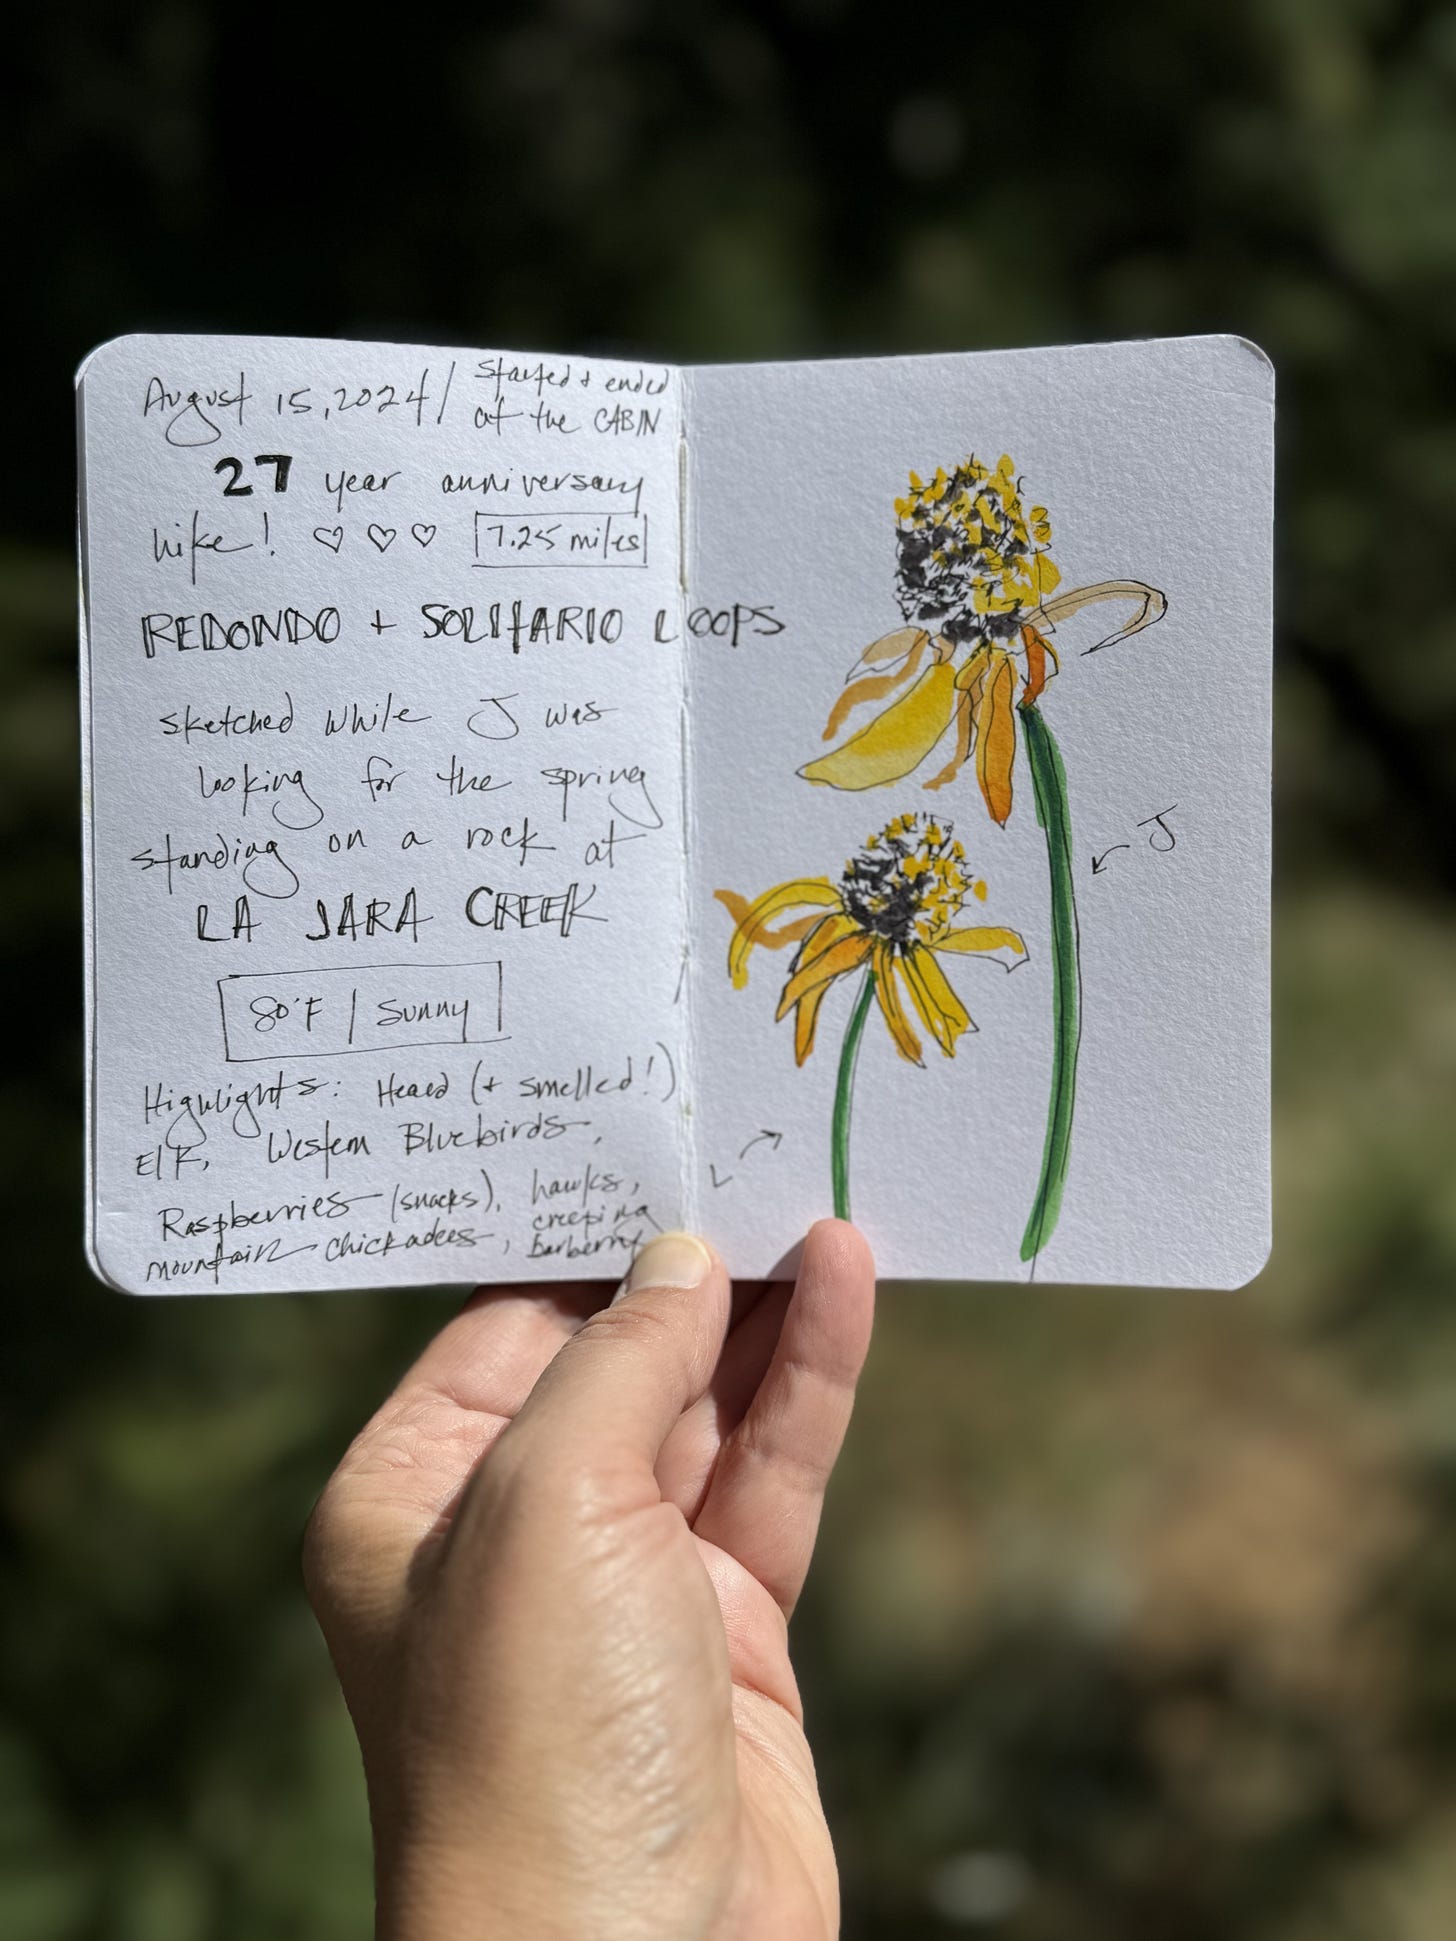 August 15, 2024 / started + ended
at the CABIN
27 year anniversary
hike! ♡ ♡ ♡ 7.25 miles
REDONDO + SOLITARIO LOOPS
sketched while J was
looking for the spring
standing on a rock at
LA JARA CREEK
80°F | Sunny
Highlights: Heard (+ smelled!)
Elk, Western Bluebirds,
Raspberries (snacks), hawks,
mountain chickadees, creeping
barberry
J
L